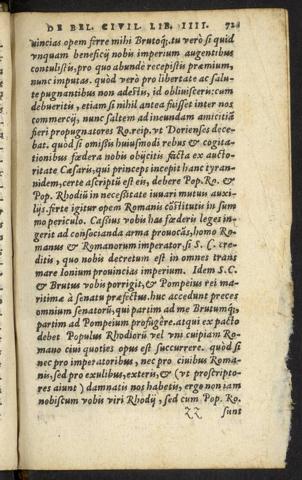 DE BEL. CIVIL LIB. IIII. 72
uincias opem ferre mihi Brutoq́;. tu verò si quid
vnquam beneficij nobis imperium augentibus
contulistis, pro quo abunde recepistis præmium,
nunc imputas. quòd verò pro libertate ac salu-
te pugnantibus non adestis, id obliuisceris: cum
debueritis, etiam si nihil antea fuisset inter nos
commercij, nunc saltem ad ineundam amicitiã
fieri propugnatores Ro. reip. vt Dorienses dece-
bat. quòd si omissis huiusmodi rebus & cogita-
tionibus fœdera nobis obijcitis facta ex aucto-
ritate Cæsaris, qui princeps incepit hanc tyran-
nidem, certe ascriptũ est eis, debere Pop. Ro. &
Pop. Rhodiũ in necessitate iuuari mutuis auxi-
lijs. ferte igitur opem Romanis cõstitutis in sum
mo periculo. Cassius vobis has fœderis leges in-
gerit ad consocianda arma prouocãs, homo Ro-
manus & Romanorum imperator, si S. C. cre-
ditis, quo nobis decretum est in omnes trans
mare Ionium prouincias imperium. Idem S. C.
& Brutus vobis porrigit, & Pompeius rei ma-
ritimæ à senatu præfectus. huc accedunt preces
omnium senatorũ, qui partim ad me Brutumq́;,
partim ad Pompeium profugêre. atqui ex pacto
debet Populus Rhodiorũ vel vni cuipiam Ro-
mano ciui quoties opus est succurrere. quòd si
nec pro imperatoribus, nec pro ciuibus Roma-
nis, sed pro exulibus, exteris, & (vt proscripto-
res aiunt) damnatis nos habetis, ergo non iam
nobiscum vobis viri Rhodij, sed cum Pop. Ro.
ZZ sunt